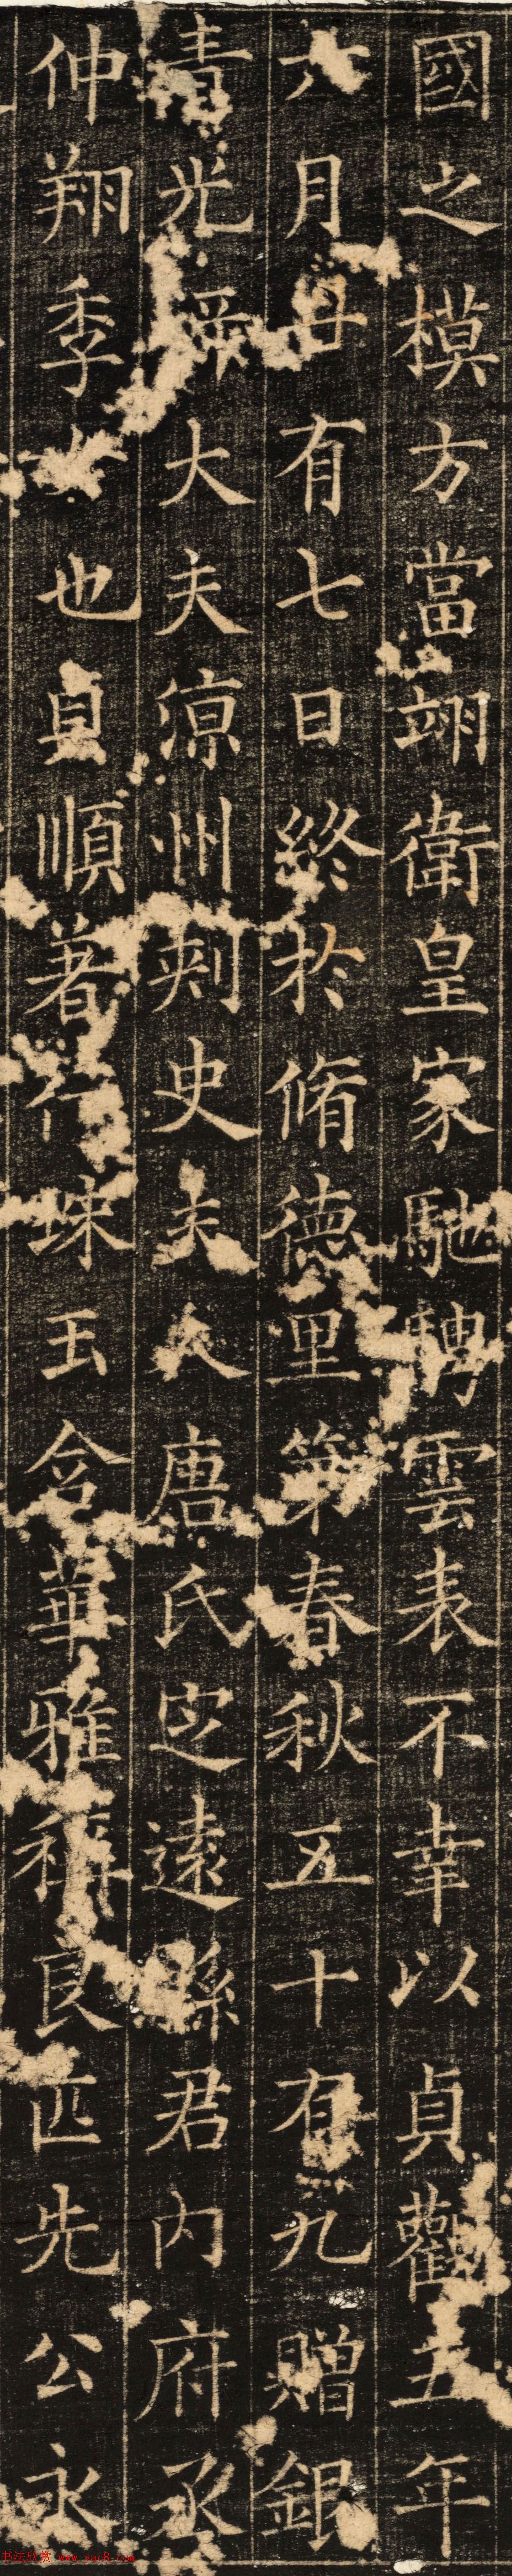 國之模方當翊衛皇家馳騁雲表不幸以貞觀五年
六月廿有七日終於脩德里第春秋五十有九贈銀
青光祿大夫涼州刺史夫人唐氏定遠縣君內府丞
仲翔季女也貞順著行珠玉含華雅稱良匹先公永
书法欣赏 www.yac8.com